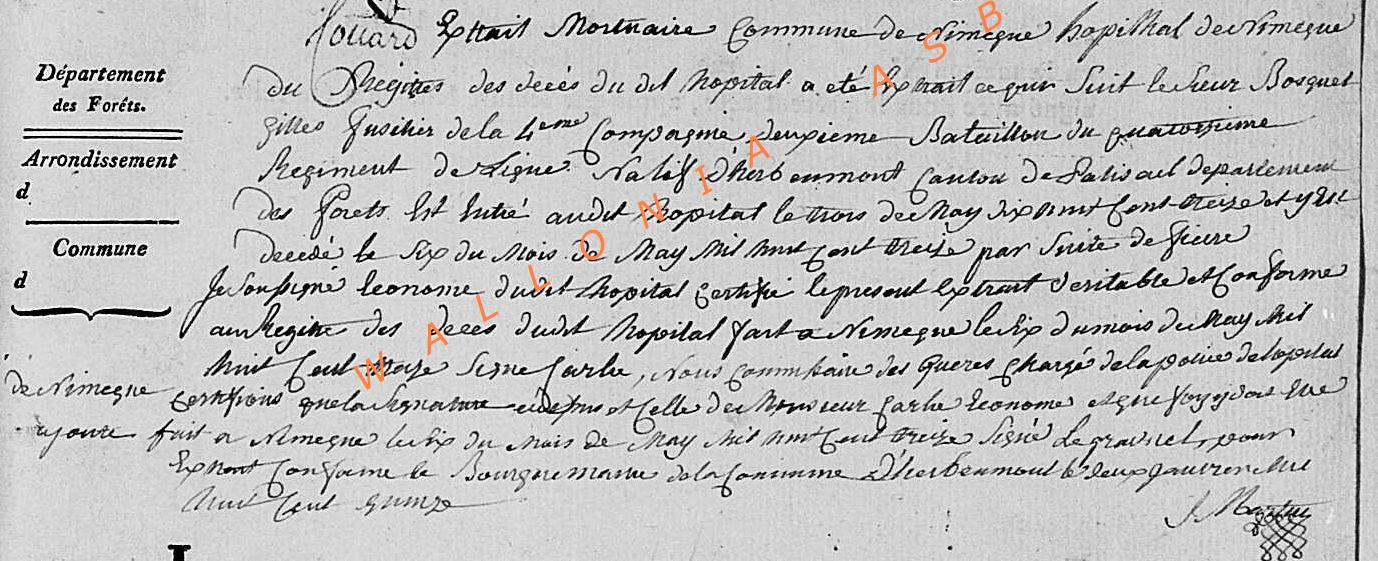 Extrait Mortuaire Commune de Nimegue hopithal de Nimegue
Département
des Forêts.
Arrondissement
d
Commune
d
du Regittes des decés du dit hopital a eté Extrait ce qui suit le sieur Bosquet
gilles fusilier de la 4eme Compagnie deuxieme Bataillon du quatorzieme
Regiment de Ligne Natif D'herbeumont Canton de Paliseul departement
des forets Est Entré audit hopital le trois de May dix huit Cent treize et y Est
decédé le Six du Mois de May Mil huit Cent treize par Suite de fievre
Je Soussigné Econome dudit hopital Certifié le present Extrait Veritable et Conforme
au Regitte des deces dudit hopital fait a Nimegue le Six du mois de May Mil
huit Cent treize Signe Carlie, Nous Commissaire des Gueres Chargé de la police de lopital
de Nimegue
Certifions que la Signature est Celle de Monsieur Carlie Econome et que foy y doit etre
ajoute fait a Nimegue le Six du Mois de May Mil huit Cent treize Signé pour
Extrait Conforme le Bourguemaitre de la Commune D'herbeumont le deux Janvier Mil
huit Cent quinze
J Martin
WALLONIA ASB